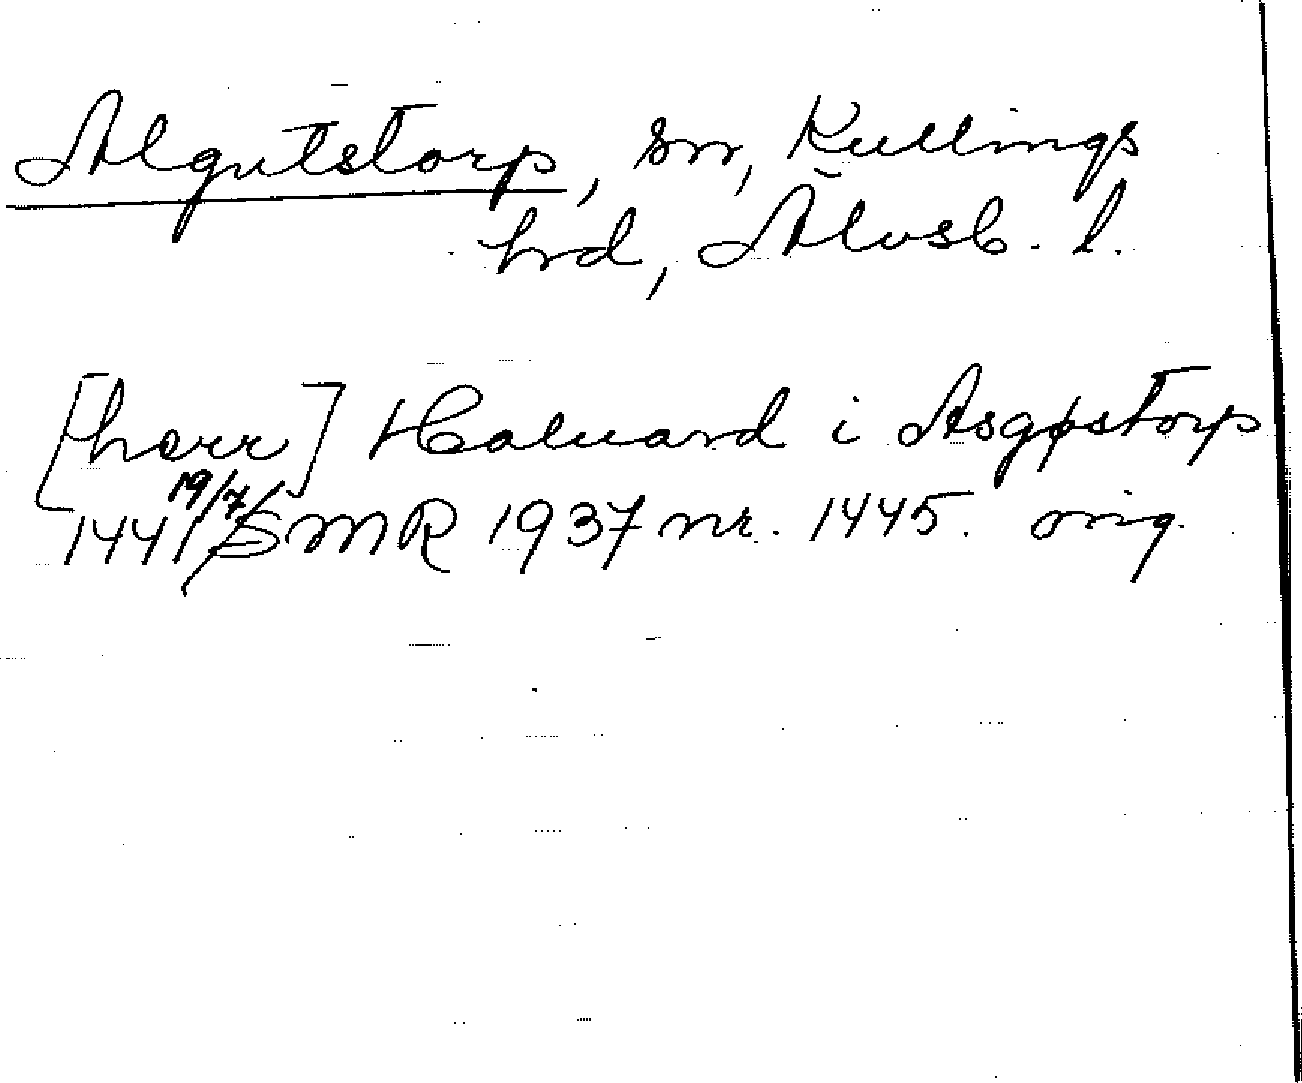 Algutstorp, sn, Kullings
hd, Älvsb. l.
[herr] Haluard i Asgøstorp
1441 19/7 SMR 1937 nr. 1445. orig.